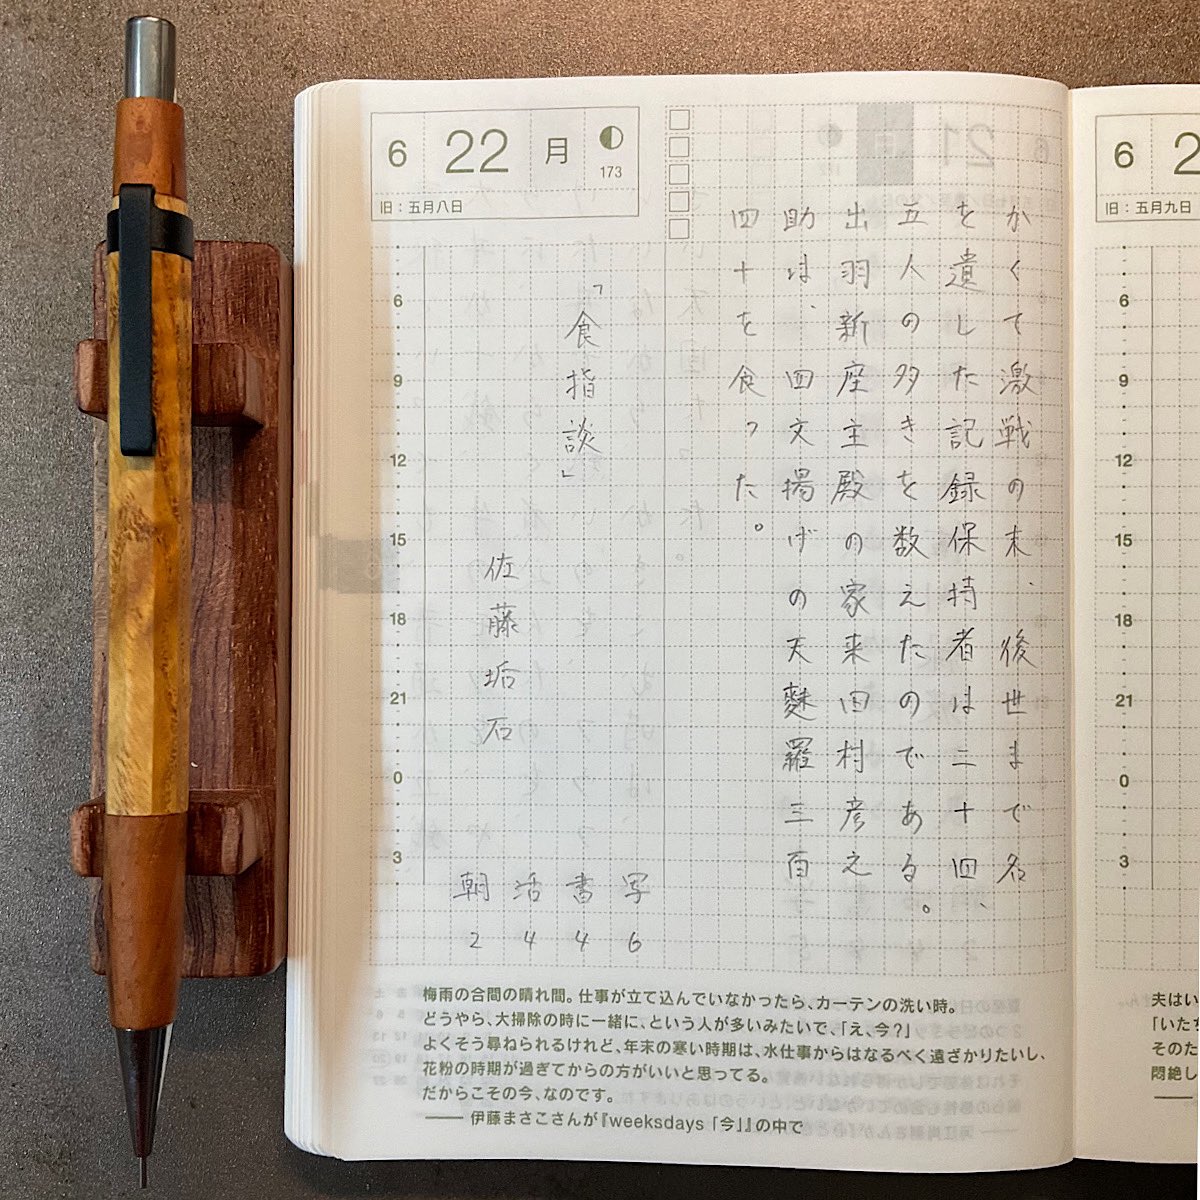 6 22 月
173
旧：五月八日
かくて激戦の末、後世まで名
を遺した記録保持者は二十四、
五人の多きを数えたのである。
出羽新座主殿の家来田村彦之
助は、四文揚げの天麩羅三百
四十を食った。
「食指談」
佐藤垢石
朝活書写
2446
6
9
12
15
18
21
0
3
梅雨の合間の晴れ間。仕事が立て込んでいなかったら、カーテンの洗い時。
どうやら、大掃除の時に一緒に、という人が多いみたいで、「え、今？」
よくそう尋ねられるけれど、年末の寒い時期は、水仕事からはなるべく遠ざかりたいし、
花粉の時期が過ぎてからの方がいいと思ってる。
だからこその今、なのです。
―― 伊藤まさこさんが『weeksdays「今」』の中で
6 2
旧：五月九日
6
9
12
15
18
21
0
3
夫はい
「いたち
そのた
悶絶し